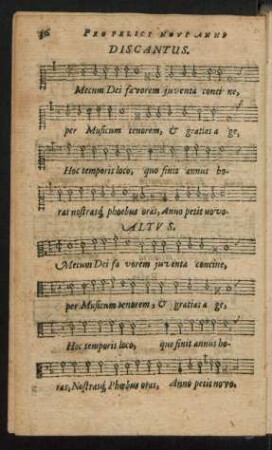 36 PRO FELICI NOVI ANNO
DISCANTUS.
Mecum Dei favorem juventa conci ne,
per Musicum tenorem, & gratias a ge,
Hoc temporis loco, quo finit annus ho-
ras nostrasq; phoebus oras, Anno petit novo.
ALTVS.
Mecum Dei fa vorem juventa concine,
per Musicum tenorem, & gratias a ge,
Hoc temporis loco, quo finit annus ho-
ras, Nostrasq; Phœbus oras, Anno petit novo.